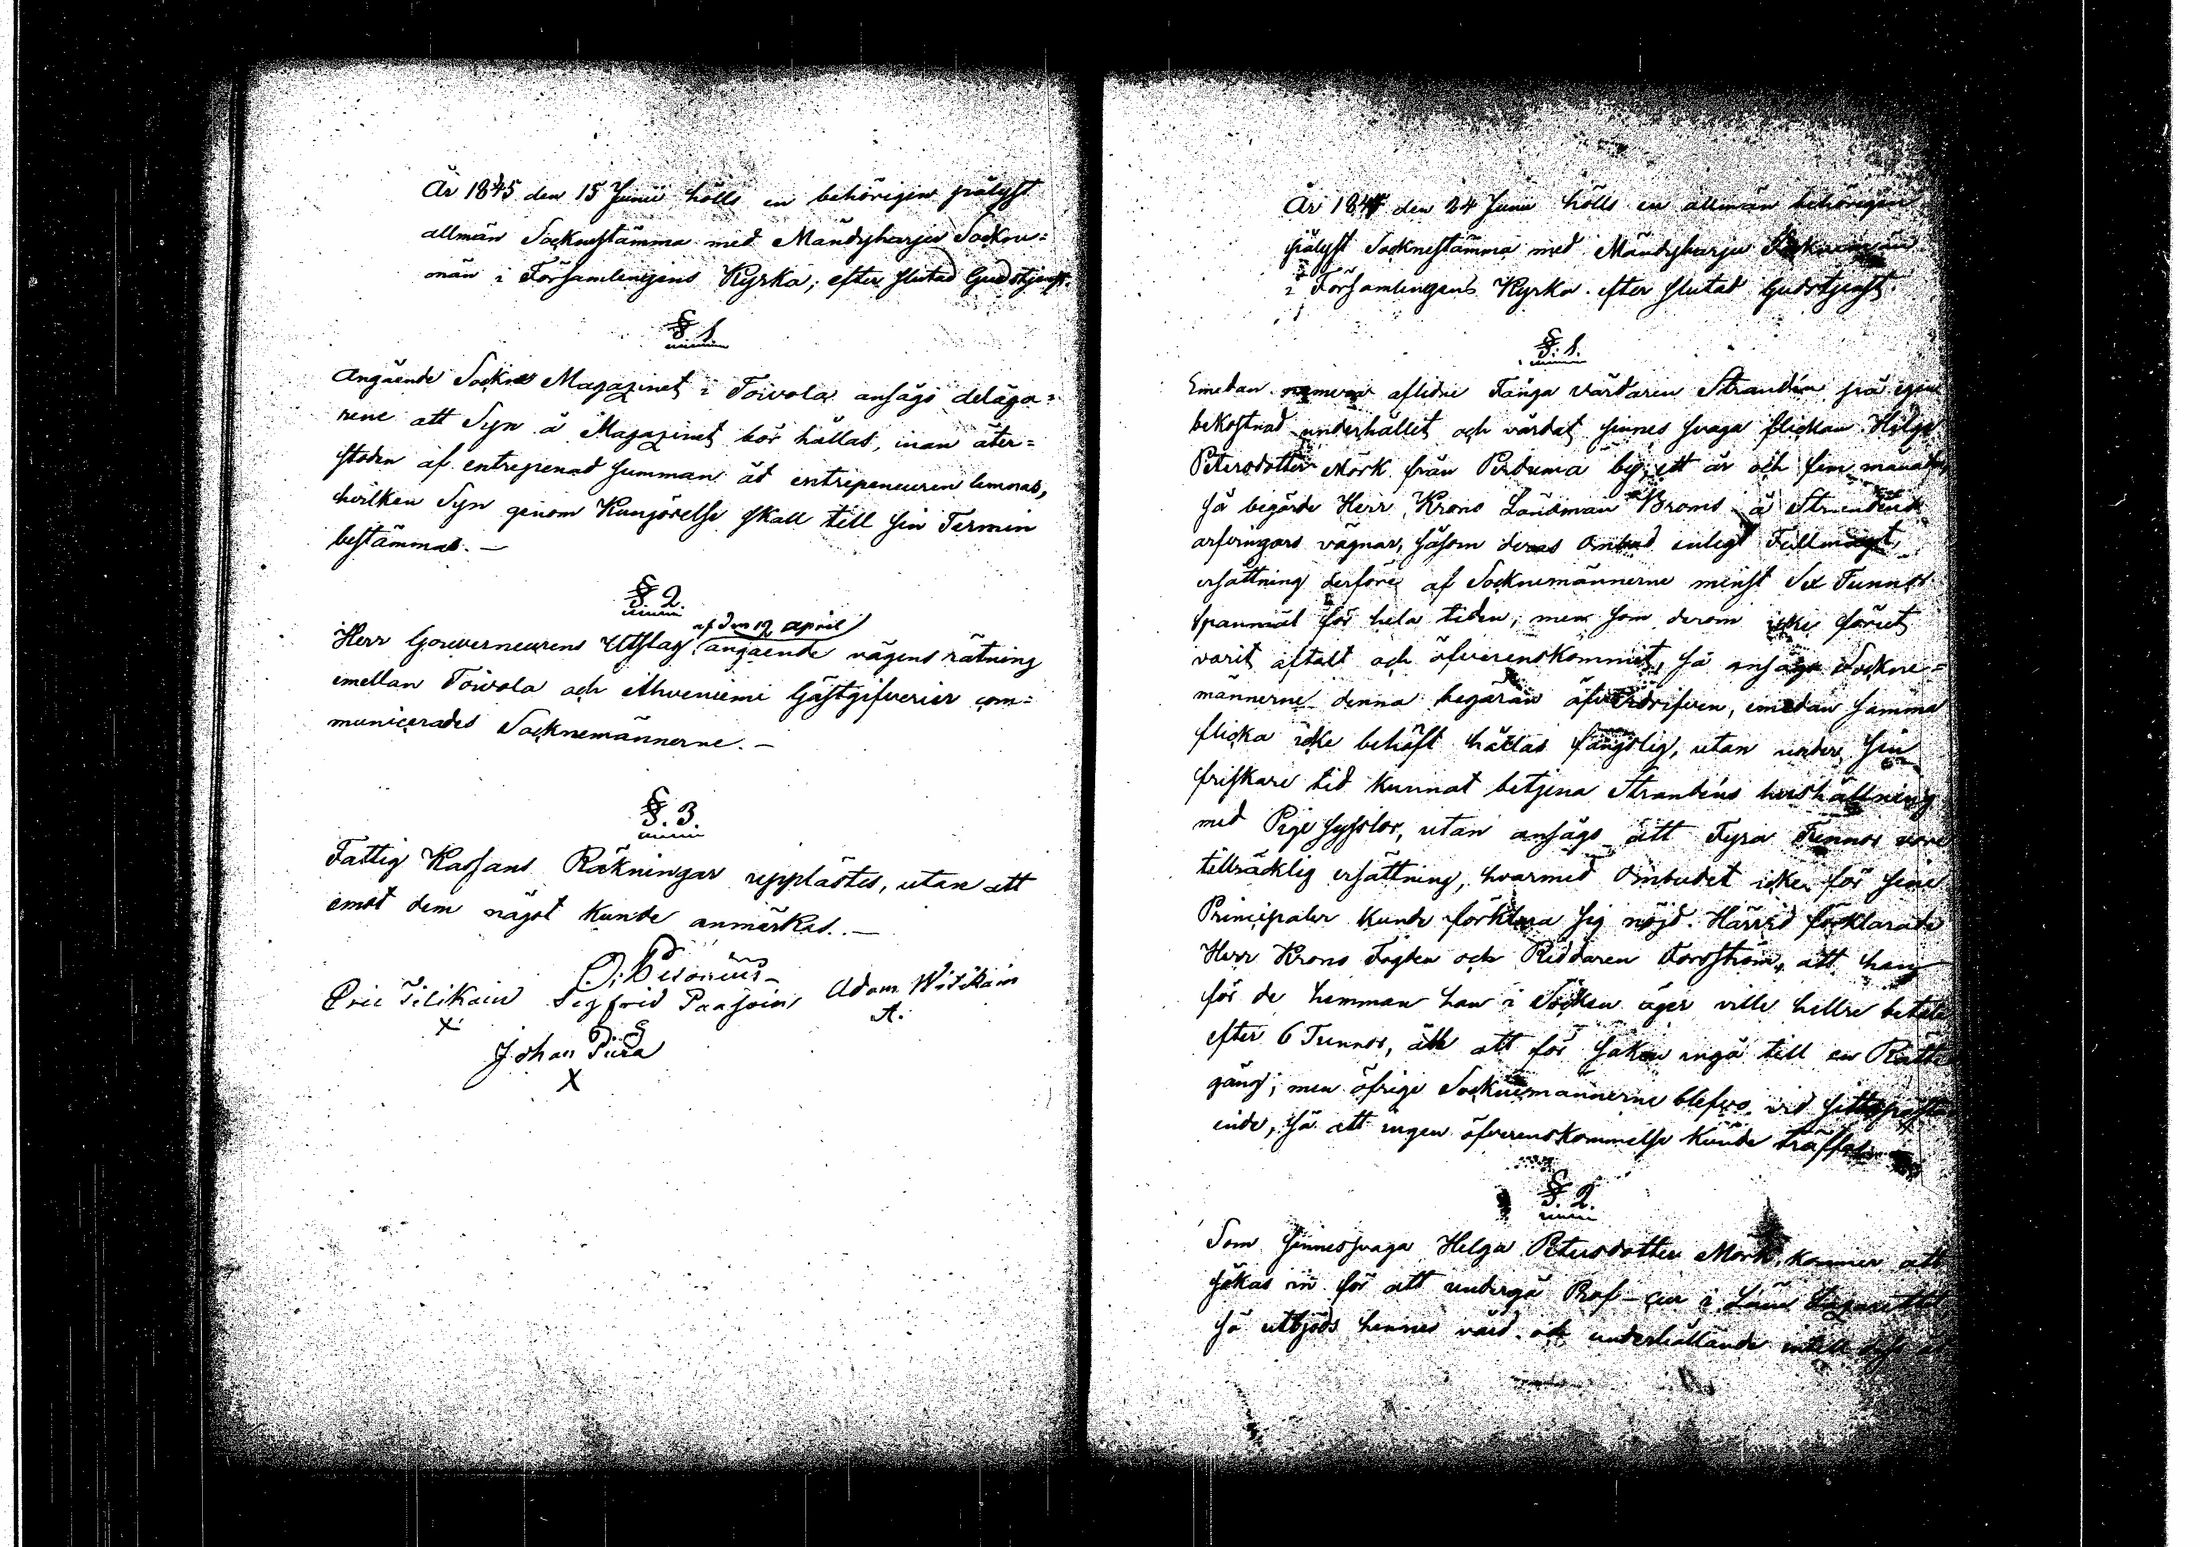 År 1845 den 15 Junii hölls en behörigen pålyst
allmän Socknestämma med Mändyharju Sockne=
män i Församlingens Kyrka, efter slutad Gudstjenst.
§ 1.
Angående Sockne Magazinet i Toivola ansågo delega=
rene att Syn å Magazinet bör hållas, inan åter=
stoden af entrepenad summan åt entrepeneuren lemnas,
hvilken Syn genom Kungörelse skall till sin Termin
bestämmas. —
§ 2.
af den 12 april
Herr Gouverneurens Utslag angående vägens rätning
emellan Toivola och Ahveniemi Gästgifverier com=
municerades Socknemännerne. —
§. 3.
Fattig Kassans Räkningar upplästes, utan att
emot dem något kunde anmärkas. —
Eric Tilikain Sigfrid Paasoin, Adam Witikain
X A.
Johan Pura
X
År 1847 den 24 Junii hölls en allmän behörigen
pålyst Socknestämma med Mändyharju Socknemän
i Församlingens Kyrka efter slutad Gudstjenst.
§. 1.
Emedan numera aflidne Fånga vårdaren Strandén på egen
bekostnad underhållit och vårdat sinnes svaga flickan Helga
Petersdotter Mörk från Perduma by, ett år och fem månader,
så begärde Herr Krono Länsman Broms å Strandéns
arfvingars vägnar, såsom deras Ombud enligt Fullmagt,
ersättning derföre af Socknemännerne minst Sex Tunnor
Spannmål för hela tiden, men som derom icke förut
varit aftalt och öfverenskommit, så ansågo Sockne=
männerne denna begäran öfverdrifven, emedan samma
flicka icke behöft hållas fängslig, utan under sin
friskare tid kunnat betjena Strandéns hushållning
med Pige sysslor, utan ansågs att Fyra Tunnor vore
tillräcklig ersättning, hvarmed Ombudet icke för sine
Principaler kunde förklara sig nöjd. Härvid förklarade
Herr Krono Fogden och Riddaren Forsström, att han
för de hemman han i Socken äger ville hellre betala
efter 6 Tunnor, än att för saken ingå till en Rätte
gång; men öfrige Socknemännerne blefvo vid sitt påstå
ende, så att ingen öfverenskommelse kunde träffas.
§. 2.
Som sinnessvaga Helga Petersdotter Mörk kommer att
sökas in för att undergå Prof-cur i Läns Lazarettet
så utbjöds hennes vård och underhållande intill dess